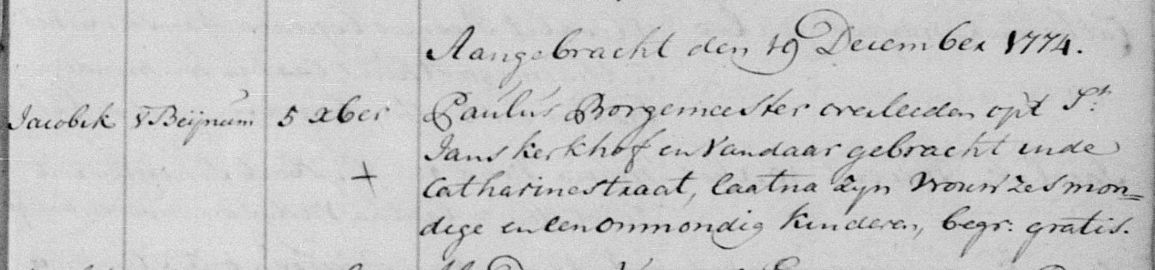 Aangebracht den 19 December 1774.
Jacobik v Beijnum 5 xber Paulus Borgemeester overleeden opt St:
Jans kerkhof en vandaar gebracht inde
Catharinestraat, laatna zyn vrouw zes mon=
+
dige en een onmondig kinderen, begr: gratis.